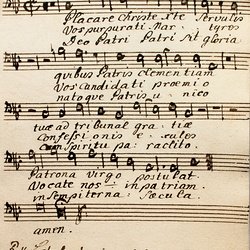 Placare Christe Servulis
Vos purpurati Mar tyres
Deo Patri Patri Sit gloria
quibus Patris Clementiam
Vos Candidati præmio
natoque Patris unico
tuæ ad tribunal gra tiæ
Confessionis
cum Spiritu pa raclito
Patrona Virgo postulat.
Vocate nos in patriam.
in sempiterna Sæcula.
amen.